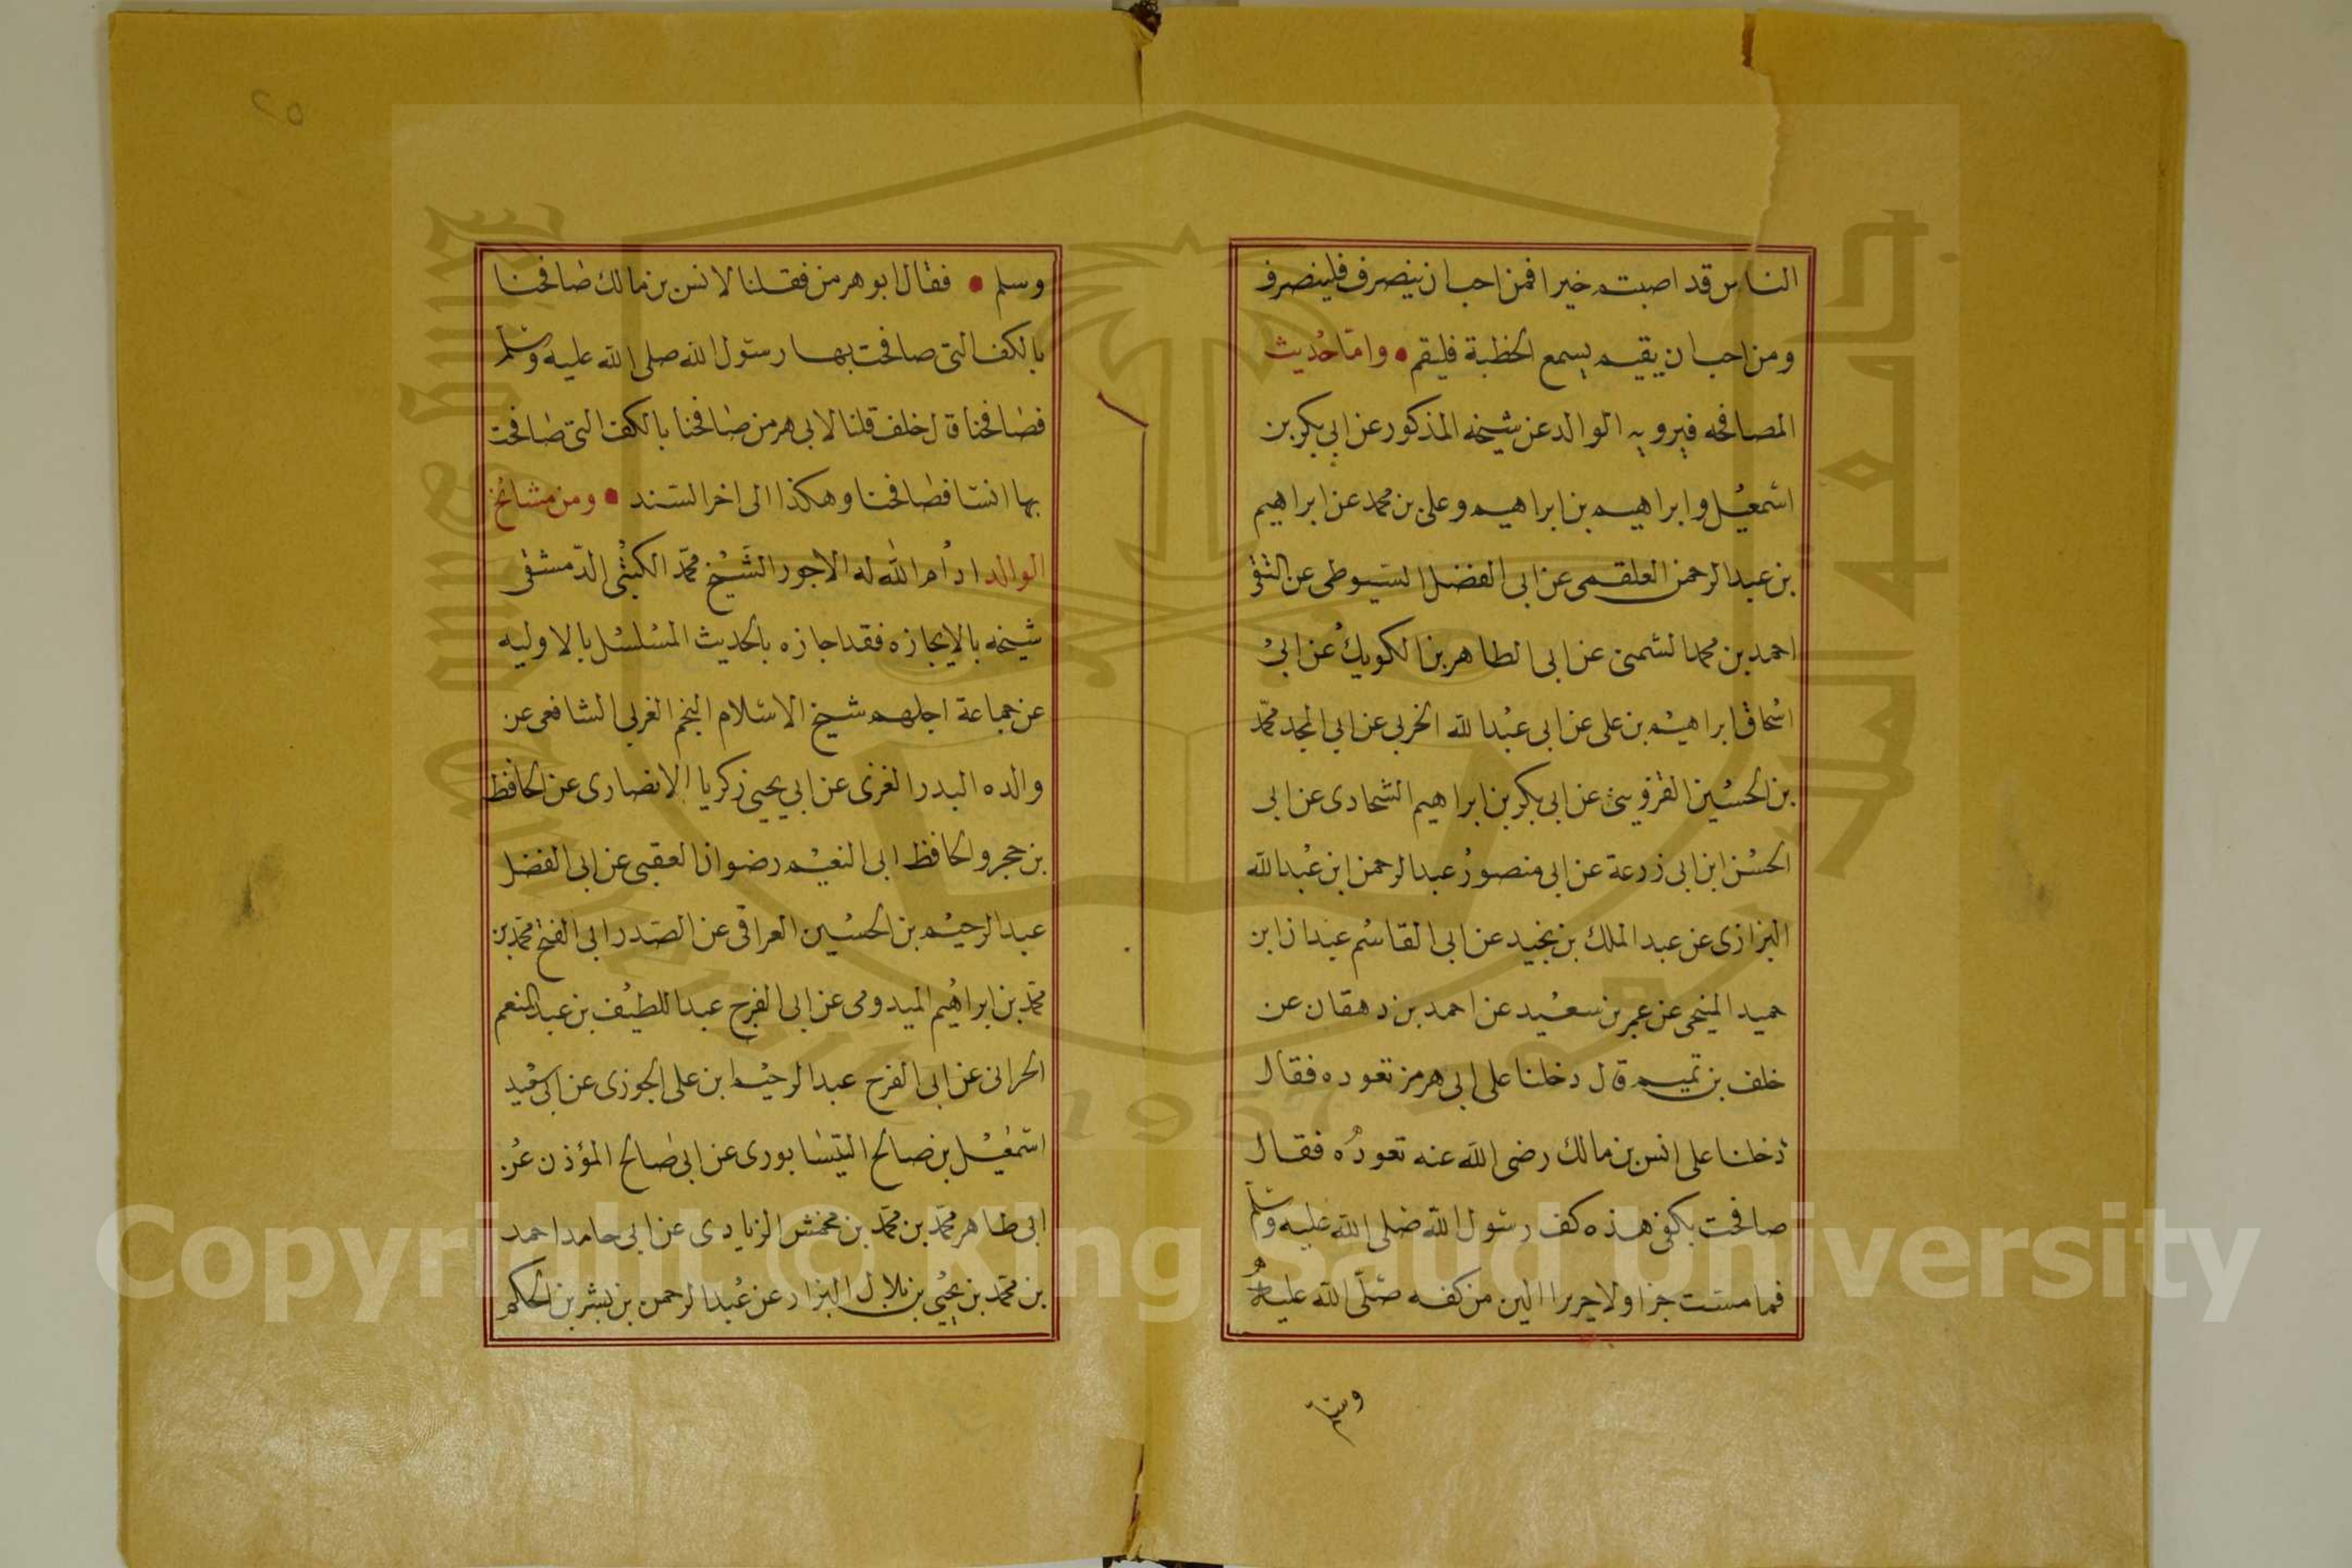 الناس قد اصبتم خيرا فمن احب ان ينصرف فلينصرف
ومن احب ان يقيم يسمع الخطبة فليقم • واما حديث
المصافحه فيرويه الوالد عن شيخه المذكور عن ابي بكر بن
اسمعيل وابراهيم بن ابراهيم وعلى بن محمد عن ابراهيم
بن عبد الرحمن العلقمى عن ابى الفضل السيوطى عن التقى
احمد بن محمد الشمنى عن ابى الطاهر بن الكويك عن ابى
اسحاق ابراهيم بن على عن ابى عبد الله الخوبى عن ابي المجد محمد
بن الحسين القزوينى عن ابى بكر بن ابراهيم الشحادى عن ابى
الحسن ابن ابى زرعة عن ابى منصور عبد الرحمن ابن عبد الله
البزازى عن عبد الملك بن نجيد عن ابى القاسم عبدان ابن
حميد المنبجى عن عمر بن سعيد عن احمد بن دهقان عن
خلف بن تميم قال دخلنا على ابى هرمز نعوده فقال
دخلنا على انس بن مالك رضى الله عنه نعوده فقال
صافحت بكفى هذه كف رسول الله صلى الله عليه وسلم
فما مسست خزا ولا حريرا الين من كفه صلى الله عليه
وسلم
٢٥
وسلم • فقال ابو هرمز فقلنا لانس بن مالك صافحنا
بالكف التى صافحت بها رسول الله صلى الله عليه وسلم
فصافحنا قال خلف قلنا لابى هرمز صافحنا بالكف التى صافحت
بها انسا فصافحنا وهكذا الى اخر السند • ومن مشائخ
الوالد ادام الله له الاجور الشيخ محمد الكبيى الدمشقى
شيخه بالايجازه فقد اجازه بالحديث المسلسل بالاوليه
عن جماعة اجلهم شيخ الاسلام النجم الغزلى الشافعى عن
والده البدر الغزى عن ابي يحيى زكريا الانصارى عن الحافظ
بن حجر والحافظ ابى النعيم رضوان العقبى عن ابى الفضل
عبد الرحيم بن الحسين العراقى عن الصدر ابى الفتح محمد بن
محمد بن ابراهيم الميدومى عن ابى الفرج عبد اللطيف بن عبد المنعم
الحرانى عن ابى الفرج عبد الرحيم ابن على الجوزى عن ابى سعيد
اسمعيل بن صالح النيسابورى عن ابى صالح المؤذن عن
ابى طاهر محمد بن محمد بن محمش الزيادى عن ابى حامد احمد
بن محمد بن يحيى بن بلال البزار عن عبد الرحمن بن بشر بن الحكم
Copyright © King Saud University
1957